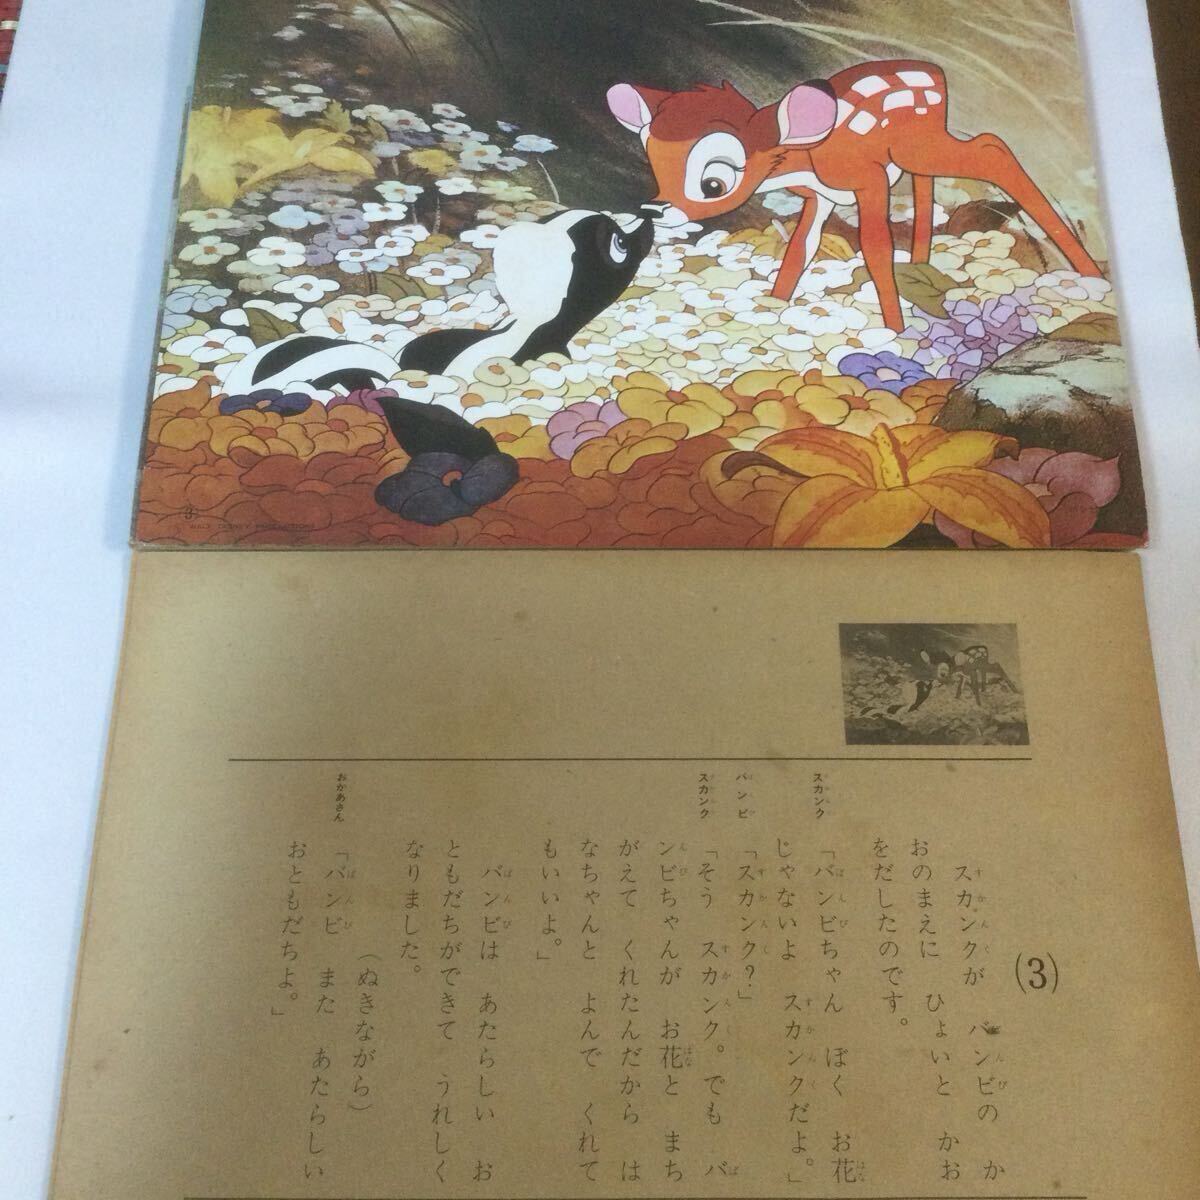 (3)
WALT DISNEY PRODUCTIONS
(3)
スカンクが バンビの か
おのまえに ひょいと かお
をだしたのです。
スカンク 「バンビちゃん ぼく お花
じゃないよ スカンクだよ。」
バンビ 「スカンク?」
スカンク 「そう スカンク。でも バ
ンビちゃんが お花と まち
がえて くれたんだから は
なちゃんと よんで くれて
もいいよ。」
バンビは あたらしい お
ともだちができて うれしく
なりました。
(ぬきながら)
おかあさん 「バンビ また あたらしい
おともだちよ。」